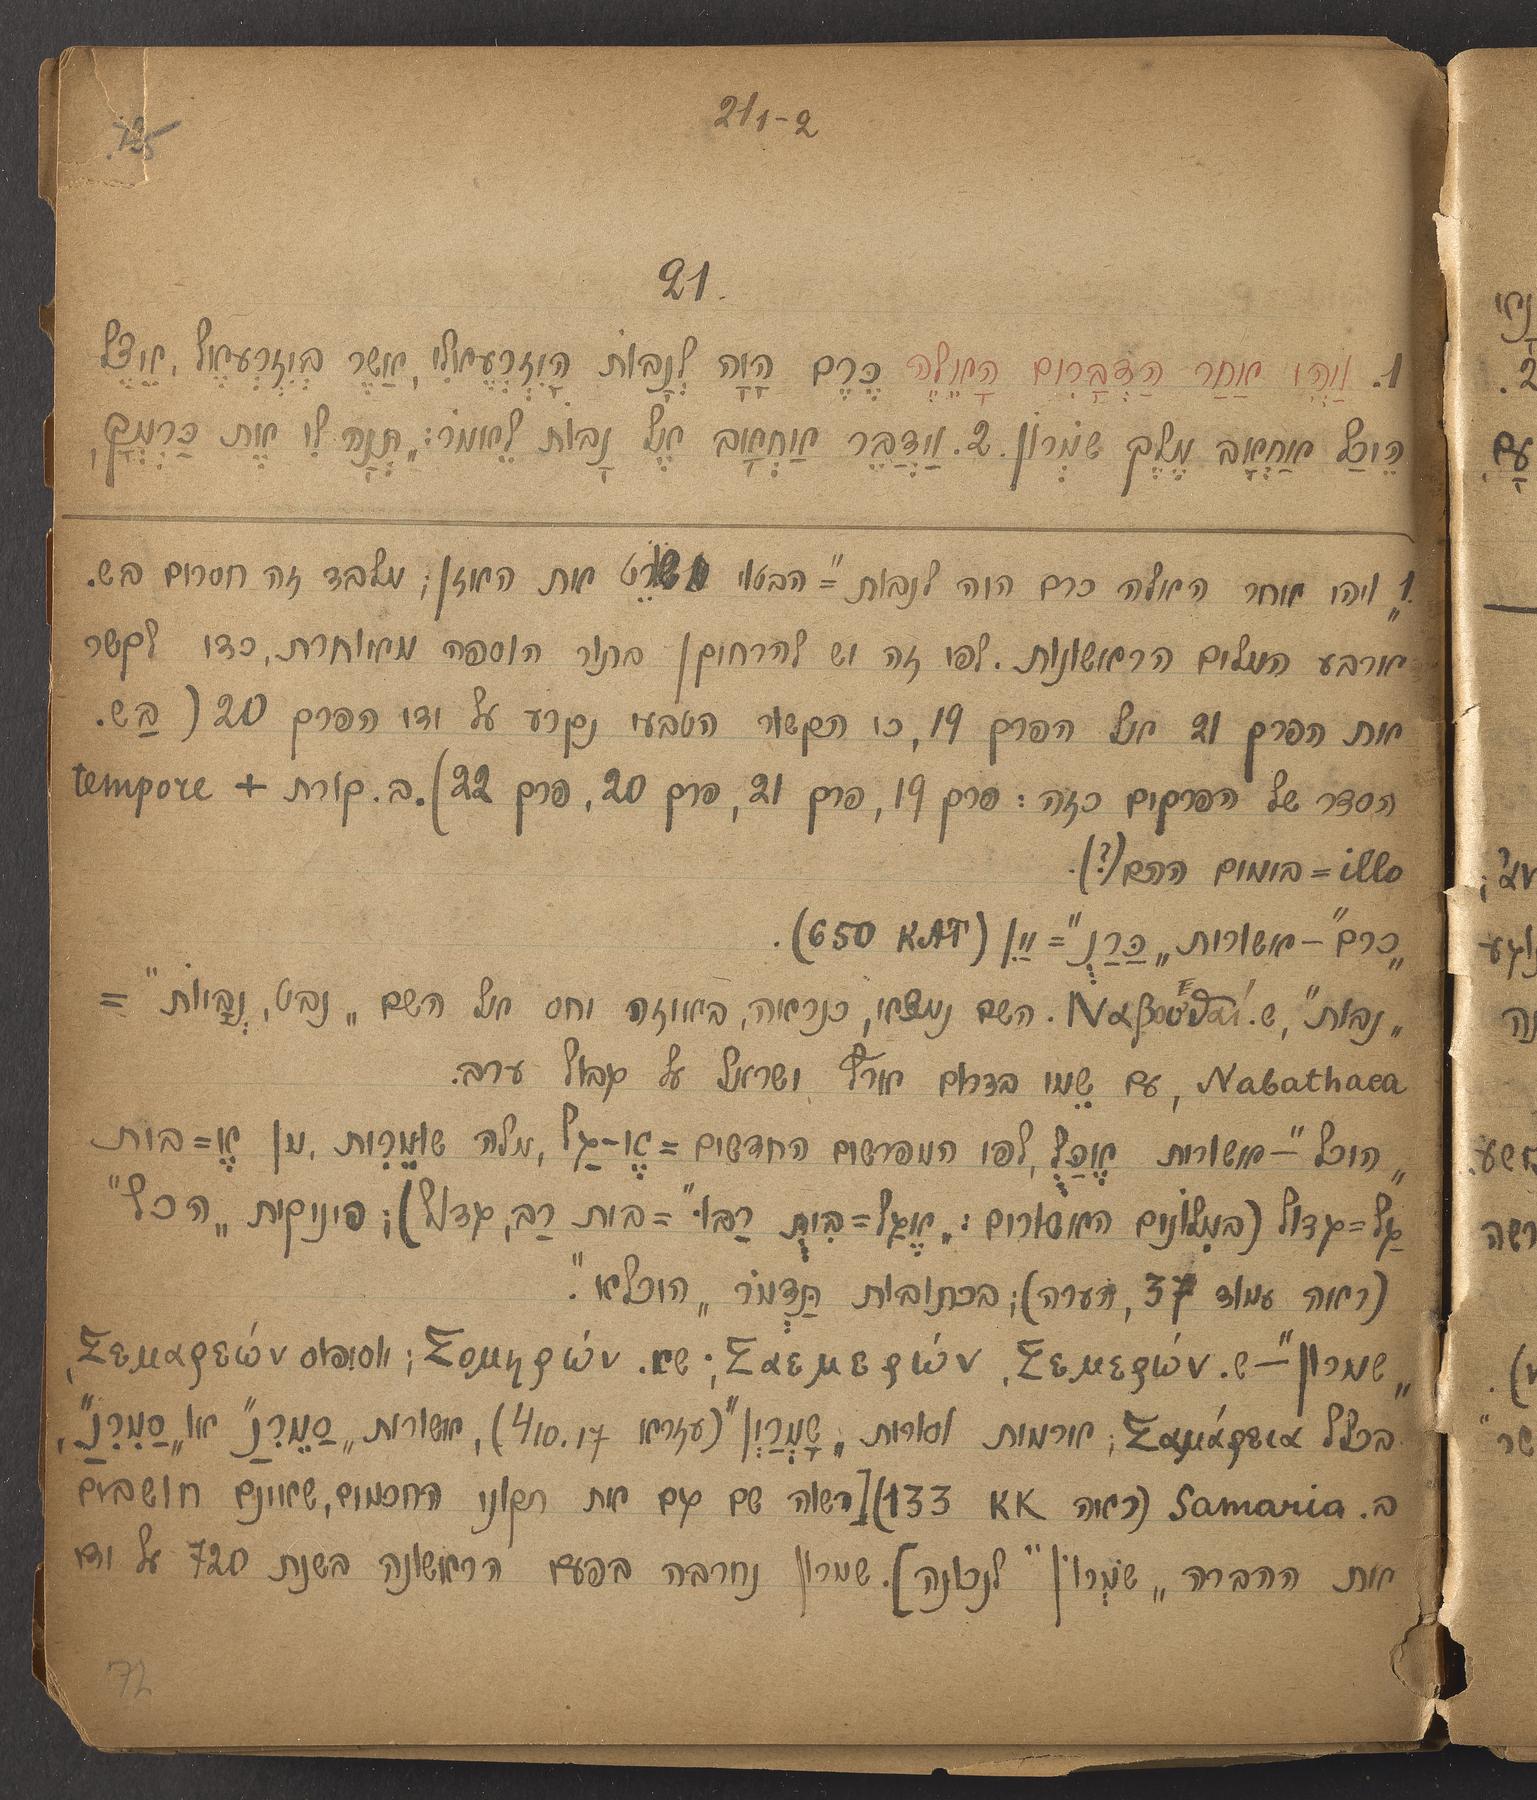 21 1-2
21.
1. וַיְהִי אַחַר הַדְּבָרִים הָאֵלֶּה כֶּרֶם הָיָה לְנָבוֹת הַיִּזְרְעֵאלִי, אֲשֶׁר בְּיִזְרְעֶאל, אֵצֶל
הֵיכַל אַחְאָב מֶלֶךְ שֹׁמְרוֹן. 2. וַיְדַבֵּר אַחְאָב אֶל נָבוֹת לֵאמֹר: „תְּנָה לִי אֶת כַּרְמְךָ,
1. „ויהי אחר האלה כרם היה לנבות" = הבטוי שורט את האוזן; מלבד זה חסרים בש.
ארבע המלים הראשונות. לפי זה יש להרחיקן בתור הוספה מאוחרת, כדי לקשר
את הפרק 21 אל הפרק 19, כי הקשור הטבעי נקרע על ידי הפרק 20 (בש.
הסדר של הפרקים כזה: פרק 19, פרק 21, פרק 20, פרק 22). ב. קורת + tempore
illo = בימים ההם(?).
„כרם" – אשורית „כַּרַנְ" = יַיִן (KAT 650).
„נבות", ש. Ναβουθαί. השם נמצא, כנראה, באיזה יחס אל השם „נבט, נְבָיוֹת" =
Nabathaea, עם שֵׁמי בדרום ארץ ישראל על גבול ערב.
„היכל" – אשורית אֶיכַּלֻ, לפי המפרשים החדשים = אֶי-גַל, מלה שוּמֵרִית, מן אֶ = בית
גַל = גדול (במִלוֹנים האשורים: „אֶגַל = בִּיתֻ רַבוּ" = בית רַב, גדול); פיניקית „הכל"
(ראה עמוד 37, הערה); בכתובות תַּדְמֹר „היכלא".
„שמרון" – ש. Σεμερών, Σαεμερών; שא. Σομηρών; יוסיפוס Σεμαρεών,
בכלל Σαμάρεια; ארמית וסורית „שָׁמְרַיִן" (עזרא 4 10. 17), אשורית „סַמֵרִנַ" או „סַמִרִנַ",
ב. Samaria (ראה KK 133) [רשוה שם גם את תקוני החכמים, שאינם חושבים
את ההברה „שׁמְרוֹן" לנכונה]. שמרון נחרבה בפעם הראשונה בשנת 720 על ידי
72